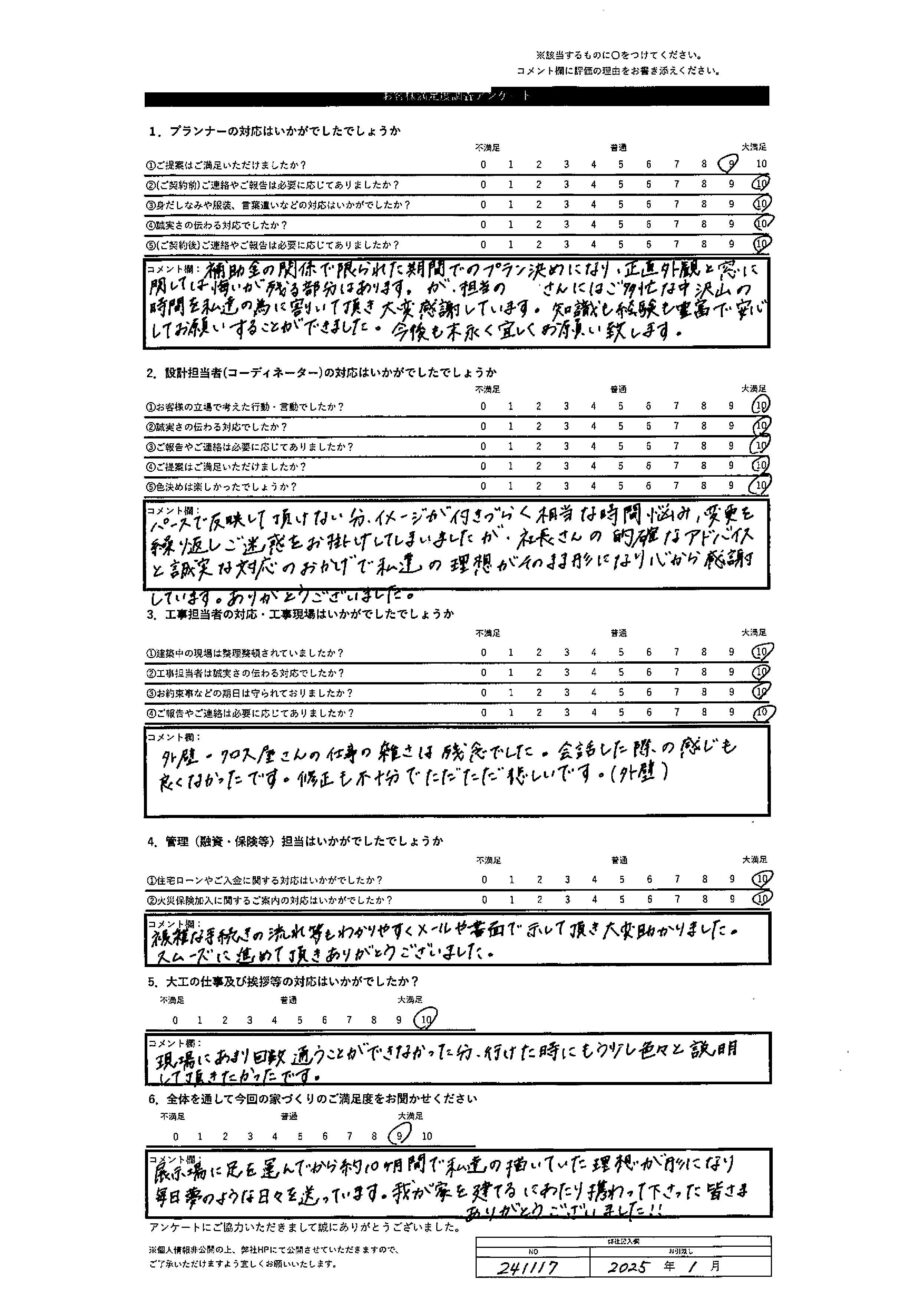 ※該当するものに○をつけてください。
コメント欄に評価の理由をお書き添えください。
お客様満足度調査アンケート
1．プランナーの対応はいかがでしたでしょうか
不満足 普通 大満足
①ご提案はご満足いただけましたか？ 0 1 2 3 4 5 6 7 8 9 10
②(ご契約前)ご連絡やご報告は必要に応じてありましたか？ 0 1 2 3 4 5 6 7 8 9 10
③身だしなみや服装、言葉遣いなどの対応はいかがでしたか？ 0 1 2 3 4 5 6 7 8 9 10
④誠実さの伝わる対応でしたか？ 0 1 2 3 4 5 6 7 8 9 10
⑤(ご契約後)ご連絡やご報告は必要に応じてありましたか？ 0 1 2 3 4 5 6 7 8 9 10
コメント欄： 補助金の関係で限られた期間でのプラン決めになり、正直外観と窓に
関しては悔いが残る部分はあります。が、担当の さんにはご多忙な中沢山の
時間を私達の為に割いて頂き大変感謝しています。知識も経験も豊富で安心
してお願いすることができました。今後も末永く宜しくお願い致します。
2．設計担当者(コーディネーター)の対応はいかがでしたでしょうか
不満足 普通 大満足
①お客様の立場で考えた行動・言動でしたか？ 0 1 2 3 4 5 6 7 8 9 10
②誠実さの伝わる対応でしたか？ 0 1 2 3 4 5 6 7 8 9 10
③ご報告やご連絡は必要に応じてありましたか？ 0 1 2 3 4 5 6 7 8 9 10
④ご提案はご満足いただけましたか？ 0 1 2 3 4 5 6 7 8 9 10
⑤色決めは楽しかったでしょうか？ 0 1 2 3 4 5 6 7 8 9 10
コメント欄：
パースで反映して頂けない分、イメージが付きづらく相当な時間悩み、変更を
繰り返しご迷惑をお掛けしてしまいましたが、社長さんの的確なアドバイス
と誠実な対応のおかげで私達の理想がそのまま形になり心から感謝
しています。ありがとうございました。
3．工事担当者の対応・工事現場はいかがでしたでしょうか
不満足 普通 大満足
①建築中の現場は整理整頓されていましたか？ 0 1 2 3 4 5 6 7 8 9 10
②工事担当者は誠実さの伝わる対応でしたか？ 0 1 2 3 4 5 6 7 8 9 10
③お約束事などの期日は守られておりましたか？ 0 1 2 3 4 5 6 7 8 9 10
④ご報告やご連絡は必要に応じてありましたか？ 0 1 2 3 4 5 6 7 8 9 10
コメント欄：
外壁・クロス屋さんの仕事の雑さは残念でした。会話した際の感じも
良くなかったです。修正も不十分でただただ悲しいです。(外壁)
4．管理（融資・保険等）担当はいかがでしたでしょうか
不満足 普通 大満足
①住宅ローンやご入金に関する対応はいかがでしたか？ 0 1 2 3 4 5 6 7 8 9 10
②火災保険加入に関するご案内の対応はいかがでしたか？ 0 1 2 3 4 5 6 7 8 9 10
コメント欄：
複雑な手続きの流れ等もわかりやすくメールや書面で示して頂き大変助かりました。
スムーズに進めて頂きありがとうございました。
5．大工の仕事及び挨拶等の対応はいかがでしたか？
不満足 普通 大満足
0 1 2 3 4 5 6 7 8 9 10
コメント欄：
現場にあまり回数通うことができなかった分、行けた時にもう少し色々と説明
して頂きたかったです。
6．全体を通して今回の家づくりのご満足度をお聞かせください
不満足 普通 大満足
0 1 2 3 4 5 6 7 8 9 10
コメント欄：
展示場に足を運んでから約10ヶ月間で私達の描いていた理想が形になり
毎日夢のような日々を送っています。我が家を建てるにあたり携わって下さった皆さま
ありがとうございました!!
アンケートにご協力いただきまして誠にありがとうございました。
※個人情報非公開の上、弊社HPにて公開させていただきますので、
ご了承いただけますよう宜しくお願いいたします。
弊社記入欄
NO お引渡し
241117 2025 年 1 月